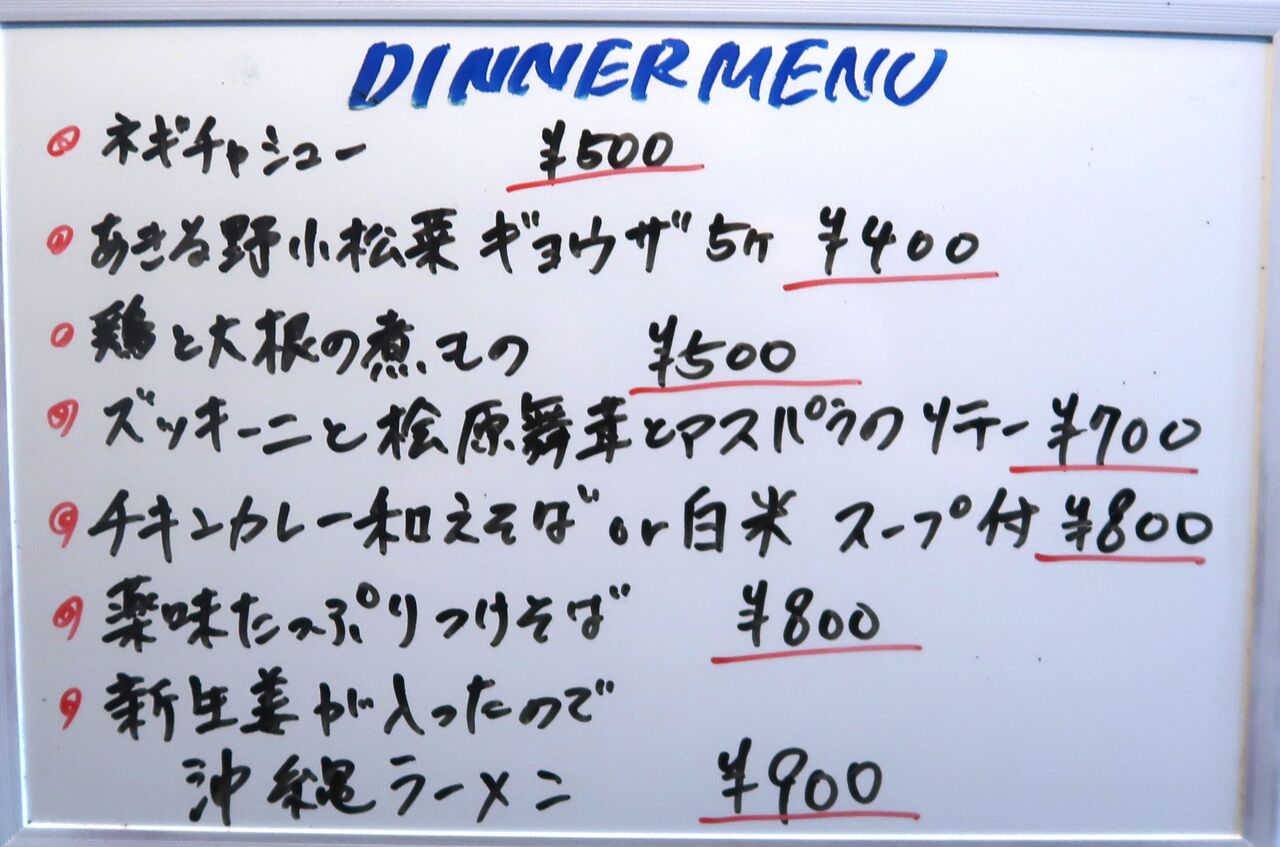 DINNER MENU
ネギチャシュー ¥500
あきる野小松菜 ギョウザ 5ヶ ¥400
鶏と大根の煮もの ¥500
ズッキーニと桧原舞茸とアスパラのソテー ¥700
チキンカレー和えそば or 白米 スープ付 ¥800
薬味たっぷりつけそば ¥800
新生姜が入ったので
沖縄ラーメン ¥900